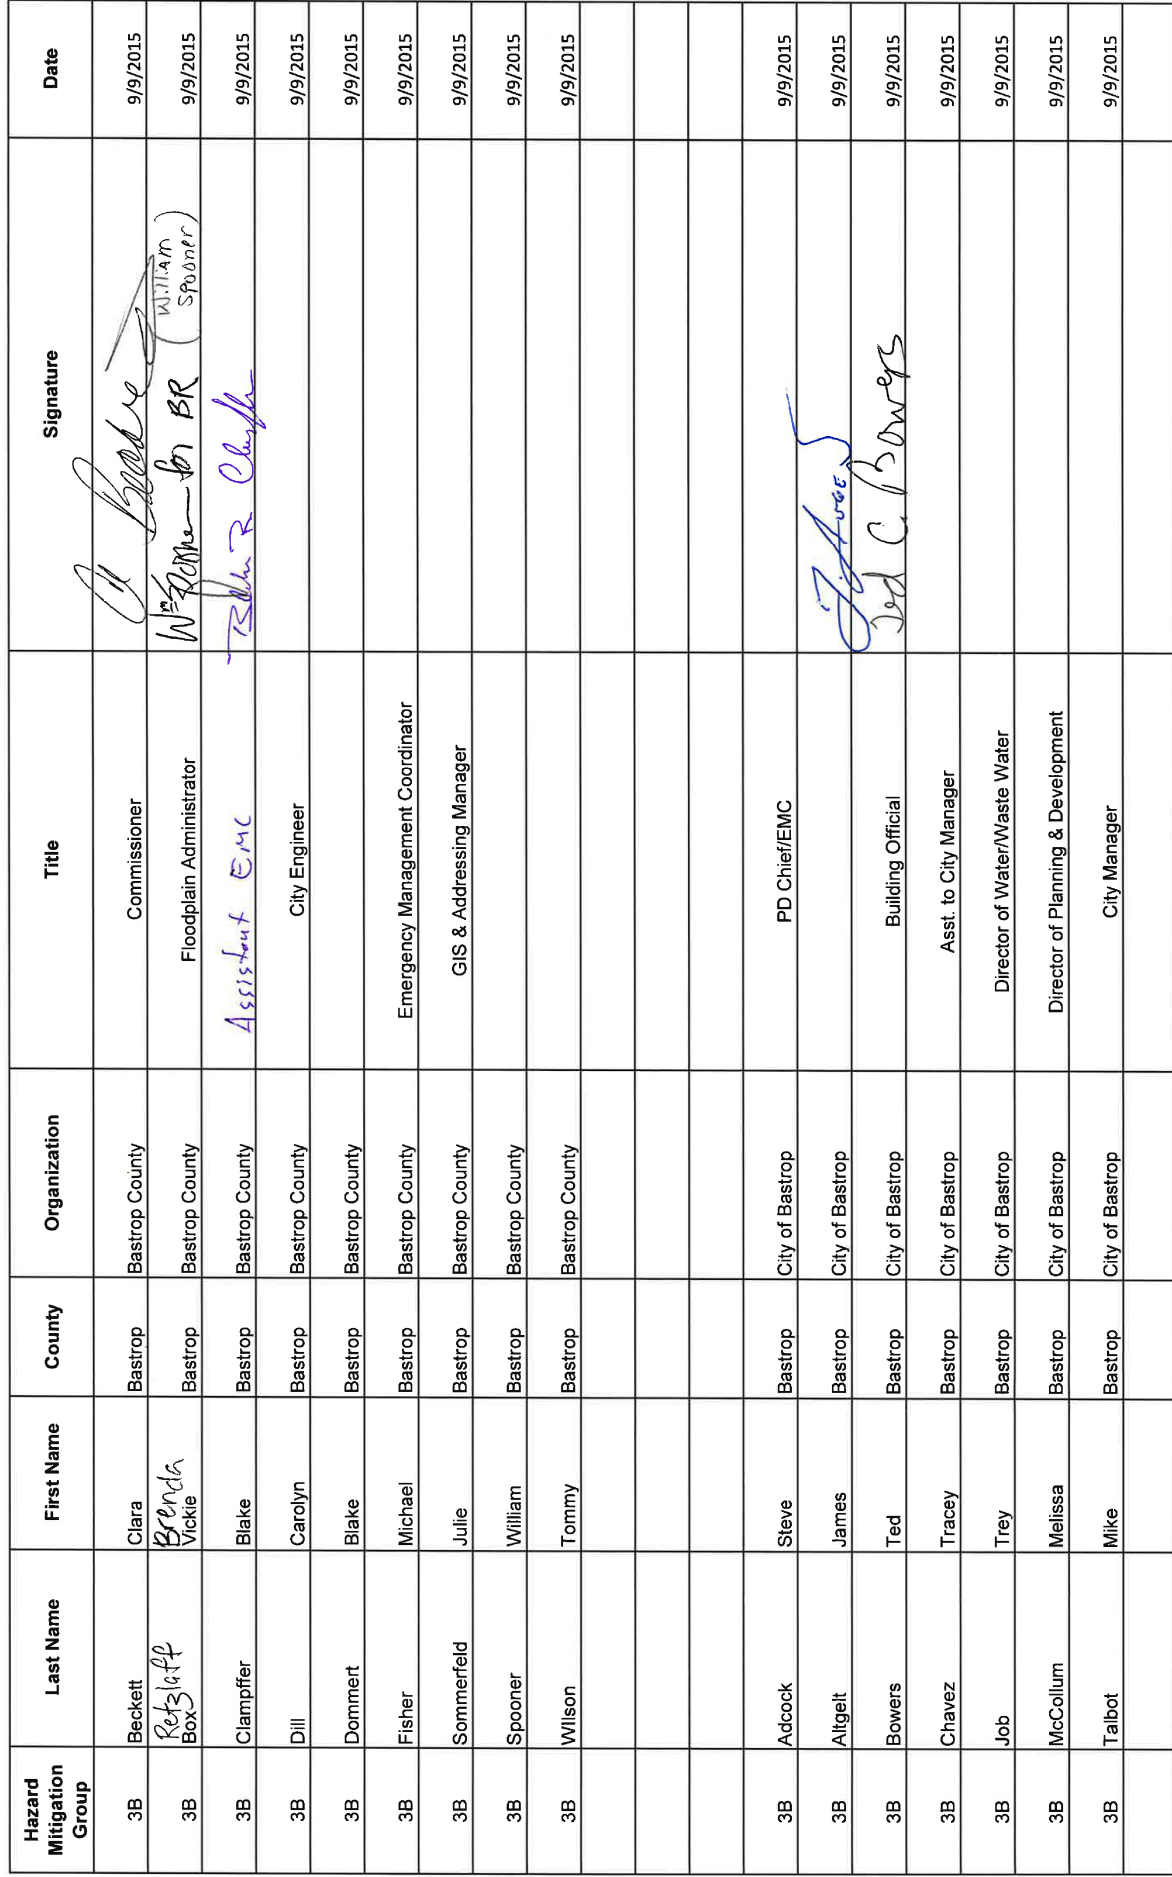 Hazard Mitigation Group Last Name First Name County Organization Title Signature Date
3B Beckett Clara Bastrop Bastrop County Commissioner 9/9/2015
Retzlaff Brenda
3B Box Vickie Bastrop Bastrop County Floodplain Administrator Wm Spooner for BR (William Spooner) 9/9/2015
3B Clampffer Blake Bastrop Bastrop County Assistant EMC 9/9/2015
3B Dill Carolyn Bastrop Bastrop County City Engineer 9/9/2015
3B Dommert Blake Bastrop Bastrop County 9/9/2015
3B Fisher Michael Bastrop Bastrop County Emergency Management Coordinator 9/9/2015
3B Sommerfeld Julie Bastrop Bastrop County GIS & Addressing Manager 9/9/2015
3B Spooner William Bastrop Bastrop County 9/9/2015
3B WIlson Tommy Bastrop Bastrop County 9/9/2015
3B Adcock Steve Bastrop City of Bastrop PD Chief/EMC 9/9/2015
3B Altgelt James Bastrop City of Bastrop 9/9/2015
3B Bowers Ted Bastrop City of Bastrop Building Official Ted C. Bowers 9/9/2015
3B Chavez Tracey Bastrop City of Bastrop Asst. to City Manager 9/9/2015
3B Job Trey Bastrop City of Bastrop Director of Water/Waste Water 9/9/2015
3B McCollum Melissa Bastrop City of Bastrop Director of Planning & Development 9/9/2015
3B Talbot Mike Bastrop City of Bastrop City Manager 9/9/2015